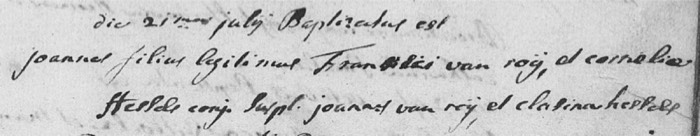 die 21mus julij Baptizatus est
joannes filius legitimus Francisci van roij, et cornelia
Hessels conj. Suspt. joannes van roij, et clasina hessels